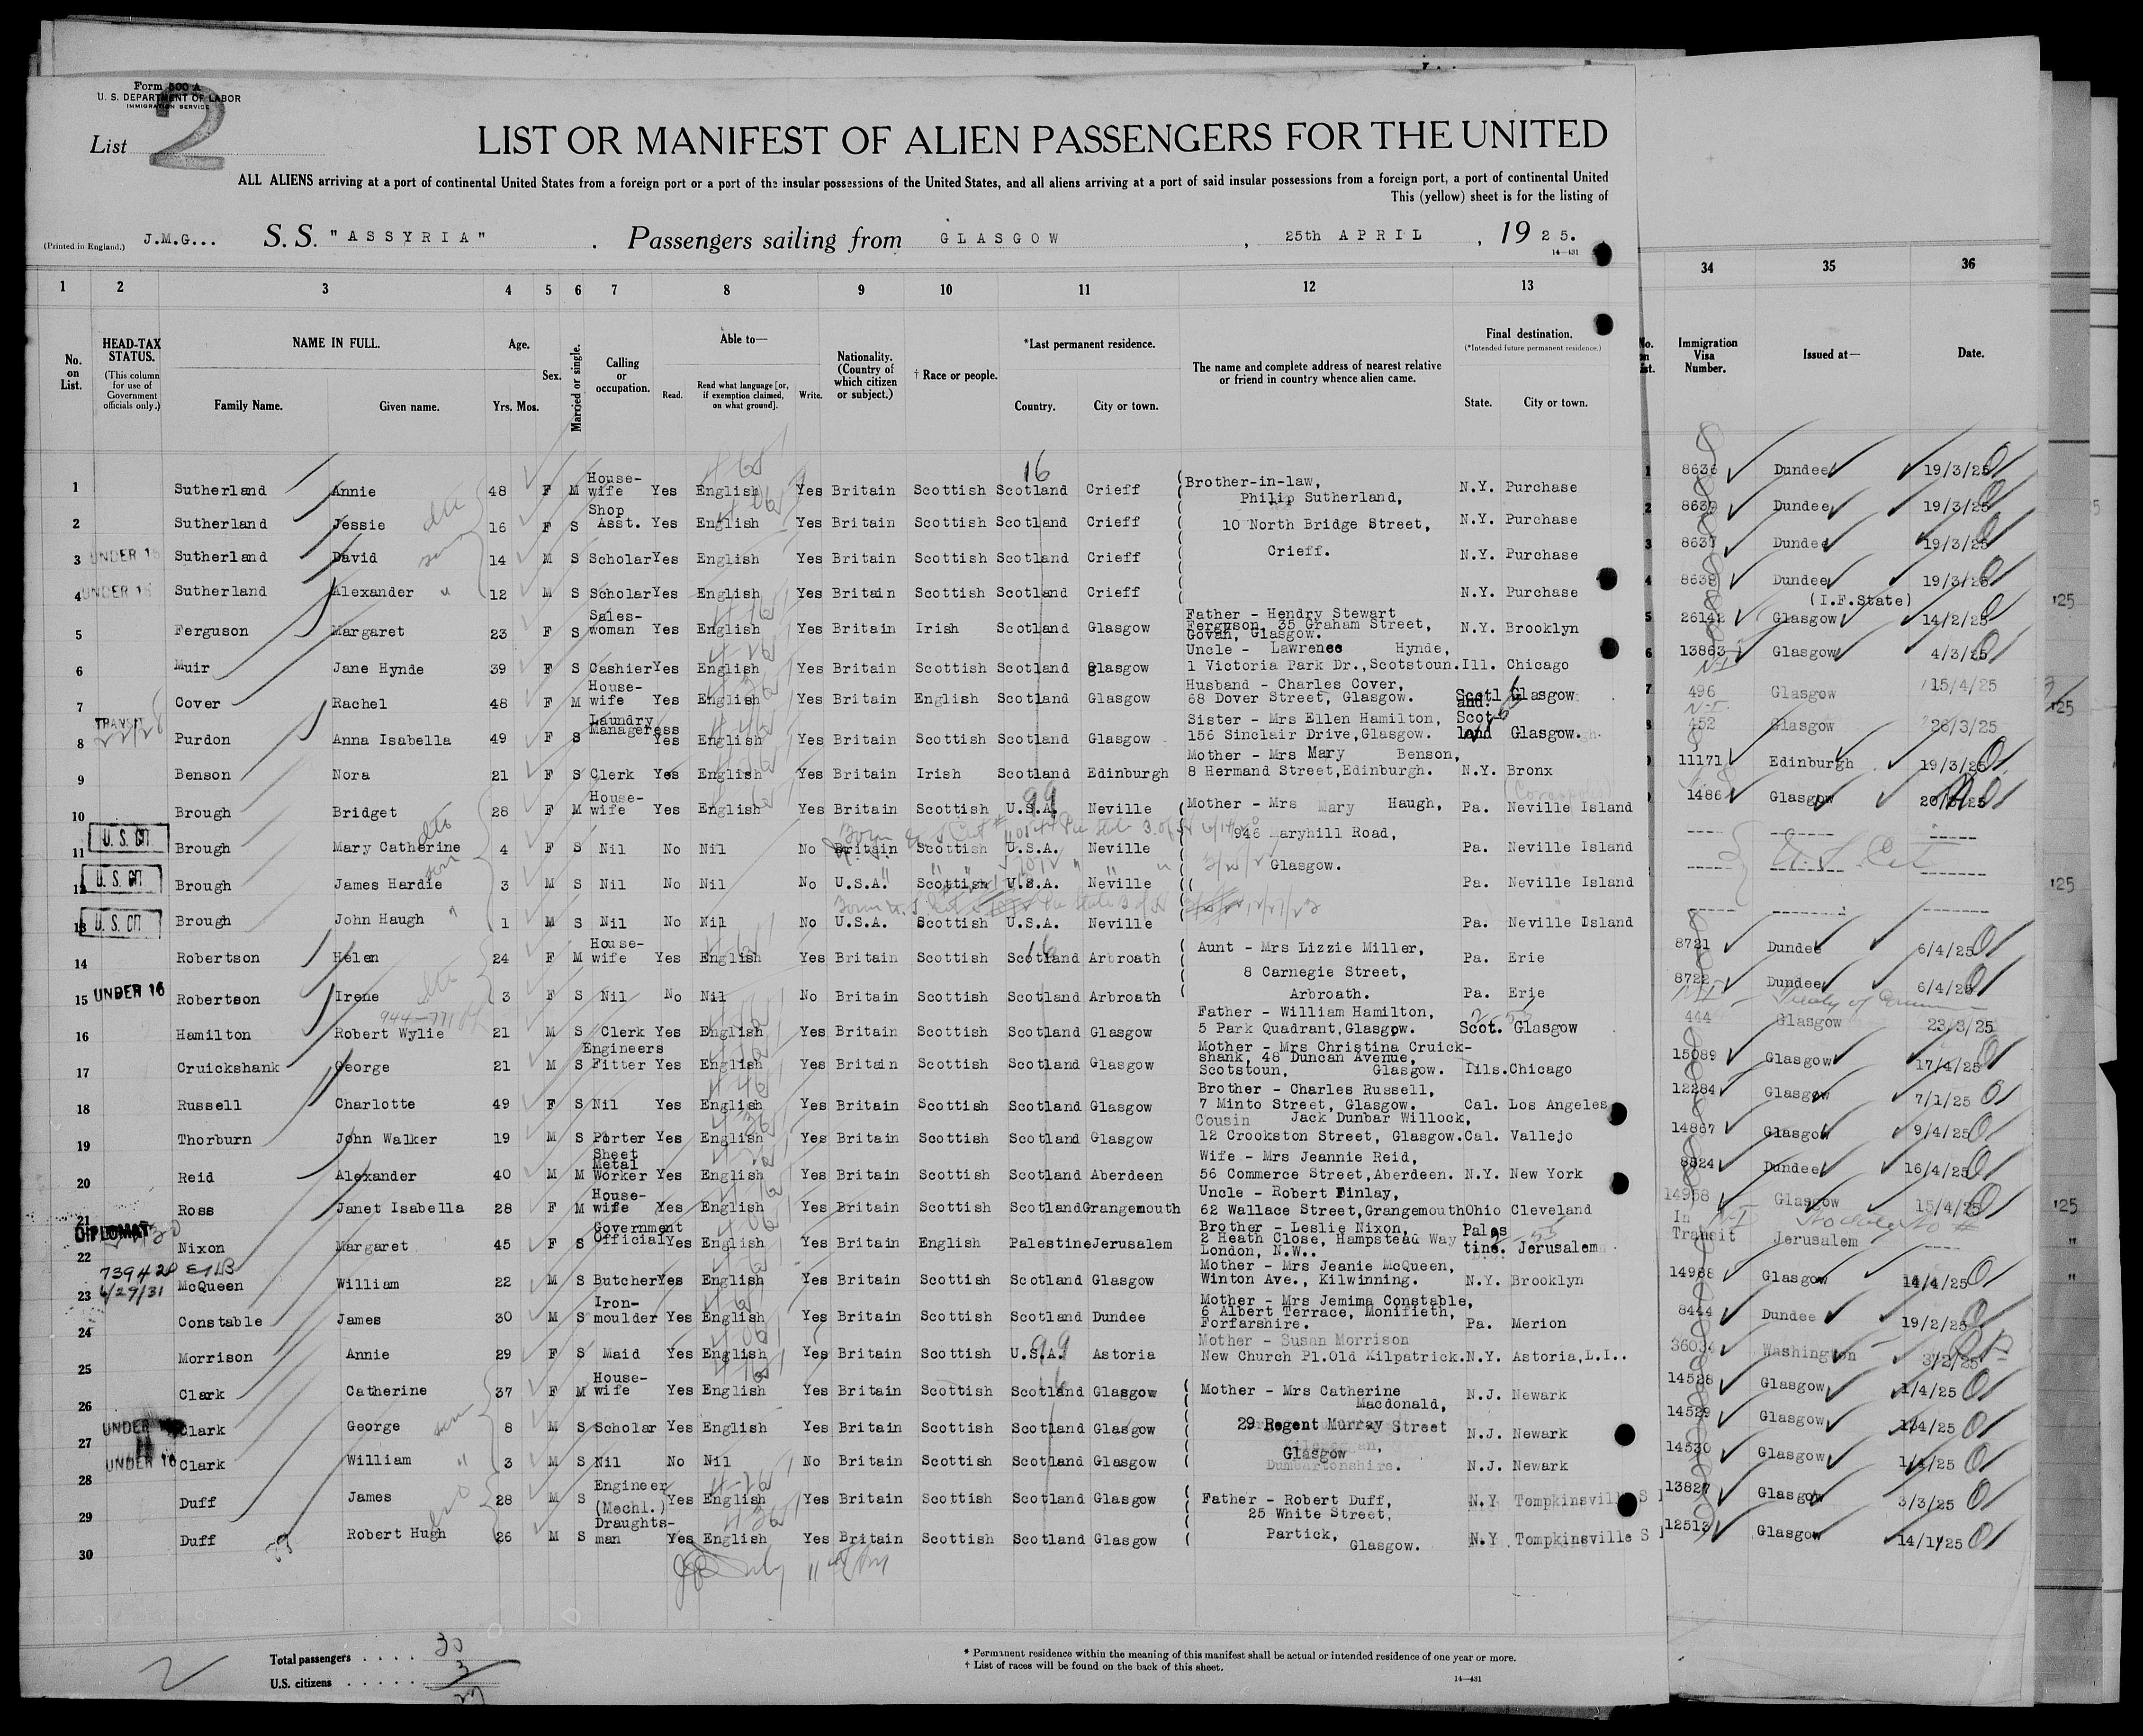 Form 500 A
U. S. DEPARTMENT OF LABOR
IMMIGRATION SERVICE
List 2
LIST OR MANIFEST OF ALIEN PASSENGERS FOR THE UNITED
ALL ALIENS arriving at a port of continental United States from a foreign port or a port of the insular possessions of the United States, and all aliens arriving at a port of said insular possessions from a foreign port, a port of continental United
This (yellow) sheet is for the listing of
(Printed in England.) J.M.G... S. S. "ASSYRIA" . Passengers sailing from GLASGOW , 25th APRIL , 1925.
14—431
1 2 3 4 5 6 7 8 9 10 11 12 13 34 35 36
No. on List. HEAD-TAX STATUS. (This column for use of Government officials only.) NAME IN FULL. Family Name. Given name. Age. Yrs. Mos. Sex. Married or single. Calling or occupation. Able to— Read. Read what language [or, if exemption claimed, on what ground]. Write. Nationality. (Country of which citizen or subject.) † Race or people. *Last permanent residence. Country. City or town. The name and complete address of nearest relative or friend in country whence alien came. Final destination. (*Intended future permanent residence.) State. City or town. Immigration Visa Number. Issued at— Date.
1 Sutherland Annie 48 F M House-wife Yes English Yes Britain Scottish Scotland Crieff Brother-in-law, Philip Sutherland, N.Y. Purchase 8636 Dundee 19/3/25
2 Sutherland Jessie 16 F S Shop Asst. Yes English Yes Britain Scottish Scotland Crieff 10 North Bridge Street, N.Y. Purchase Dundee 19/3/25
3 UNDER 16 Sutherland David 14 M S Scholar Yes English Yes Britain Scottish Scotland Crieff Crieff. N.Y. Purchase 8637 Dundee 19/3/25
4 UNDER 16 Sutherland Alexander 12 M S Scholar Yes English Yes Britain Scottish Scotland Crieff N.Y. Purchase Dundee 19/3/25
(I.F.State)
5 Ferguson Margaret 23 F S Sales-woman Yes English Yes Britain Irish Scotland Glasgow Father - Hendry Stewart Ferguson, 35 Graham Street, Govan, Glasgow. N.Y. Brooklyn 26142 Glasgow 14/2/25
6 Muir Jane Hynde 39 F S Cashier Yes English Yes Britain Scottish Scotland Glasgow Uncle - Lawrence Hynde, 1 Victoria Park Dr., Scotstoun. Ill. Chicago 13863 Glasgow 4/3/25
7 Cover Rachel 48 F M House-wife Yes English Yes Britain English Scotland Glasgow Husband - Charles Cover, 68 Dover Street, Glasgow. Scotland. Glasgow 496 Glasgow 15/4/25
8 TRANSIT Purdon Anna Isabella 49 F S Laundry Manageress Yes English Yes Britain Scottish Scotland Glasgow Sister - Mrs Ellen Hamilton, 156 Sinclair Drive, Glasgow. Scot-land Glasgow. 452 Glasgow 26/3/25
9 Benson Nora 21 F S Clerk Yes English Yes Britain Irish Scotland Edinburgh Mother - Mrs Mary Benson, 8 Hermand Street, Edinburgh. N.Y. Bronx 11171 Edinburgh 19/3/25
10 Brough Bridget 28 F M House-wife Yes English Yes Britain Scottish U.S.A. Neville Mother - Mrs Mary Haugh, Pa. Neville Island 1486 Glasgow
11 U. S. CIT Brough Mary Catherine 4 F S Nil No Nil No Britain Scottish U.S.A. Neville 946 Maryhill Road, Pa. Neville Island
12 U. S. CIT Brough James Hardie 3 M S Nil No Nil No U.S.A. Scottish U.S.A. Neville Glasgow. Pa. Neville Island
13 U. S. CIT Brough John Haugh 1 M S Nil No Nil No U.S.A. Scottish U.S.A. Neville Pa. Neville Island
14 Robertson Helen 24 F M House-wife Yes English Yes Britain Scottish Scotland Arbroath Aunt - Mrs Lizzie Miller, Pa. Erie 8721 Dundee 6/4/25
15 UNDER 16 Robertson Irene 3 F S Nil No Nil No Britain Scottish Scotland Arbroath 8 Carnegie Street, Arbroath. Pa. Erie 8722 Dundee 6/4/25
16 Hamilton Robert Wylie 21 M S Clerk Yes English Yes Britain Scottish Scotland Glasgow Father - William Hamilton, 5 Park Quadrant, Glasgow. Scot. Glasgow 444 Glasgow 23/3/25
17 Cruickshank George 21 M S Engineers Fitter Yes English Yes Britain Scottish Scotland Glasgow Mother - Mrs Christina Cruick-shank, 48 Duncan Avenue, Scotstoun, Glasgow. Ills. Chicago 15089 Glasgow 17/4/25
18 Russell Charlotte 49 F S Nil Yes English Yes Britain Scottish Scotland Glasgow Brother - Charles Russell, 7 Minto Street, Glasgow. Cal. Los Angeles 12284 Glasgow 7/1/25
19 Thorburn John Walker 19 M S Porter Yes English Yes Britain Scottish Scotland Glasgow Cousin Jack Dunbar Willock, 12 Crookston Street, Glasgow. Cal. Vallejo 14867 Glasgow 9/4/25
20 Reid Alexander 40 M M Sheet Metal Worker Yes English Yes Britain Scottish Scotland Aberdeen Wife - Mrs Jeannie Reid, 56 Commerce Street, Aberdeen. N.Y. New York 8824 Dundee 16/4/25
21 Ross Janet Isabella 28 F M House-wife Yes English Yes Britain Scottish Scotland Grangemouth Uncle - Robert Finlay, 62 Wallace Street, Grangemouth Ohio Cleveland 14958 Glasgow 15/4/25
22 DIPLOMAT Nixon Margaret 45 F S Government Official Yes English Yes Britain English Palestine Jerusalem Brother - Leslie Nixon, 2 Heath Close, Hampstead Way London, N.W.. Palestine. Jerusalem In Transit Jerusalem
23 6/29/31 McQueen William 22 M S Butcher Yes English Yes Britain Scottish Scotland Glasgow Mother - Mrs Jeanie McQueen, Winton Ave., Kilwinning. N.Y. Brooklyn 14988 Glasgow 14/4/25
24 Constable James 30 M S Iron-moulder Yes English Yes Britain Scottish Scotland Dundee Mother - Mrs Jemima Constable, 6 Albert Terrace, Monifieth, Forfarshire. Pa. Merion 8444 Dundee 19/2/25
25 Morrison Annie 29 F S Maid Yes English Yes Britain Scottish U.S.A. Astoria Mother - Susan Morrison New Church Pl. Old Kilpatrick. N.Y. Astoria, L.I.. 36034 Washington 3/2/25
26 Clark Catherine 37 F M House-wife Yes English Yes Britain Scottish Scotland Glasgow Mother - Mrs Catherine Macdonald, N.J. Newark 14528 Glasgow 1/4/25
27 UNDER Clark George 8 M S Scholar Yes English Yes Britain Scottish Scotland Glasgow 29 Regent Murray Street N.J. Newark 14529 Glasgow 1/4/25
28 UNDER 16 Clark William 3 M S Nil No Nil No Britain Scottish Scotland Glasgow Glasgow N.J. Newark 14530 Glasgow 1/4/25
29 Duff James 28 M S Engineer (Mechl.) Yes English Yes Britain Scottish Scotland Glasgow Father - Robert Duff, 25 White Street, N.Y Tompkinsville S 13827 Glasgow 3/3/25
30 Duff Robert Hugh 26 M S Draughts-man Yes English Yes Britain Scottish Scotland Glasgow Partick, Glasgow. N.Y Tompkinsville S 12513 Glasgow 14/1/25
Total passengers . . . . 30
U.S. citizens . . . . . 3
27
* Permanent residence within the meaning of this manifest shall be actual or intended residence of one year or more.
† List of races will be found on the back of this sheet.
14—431